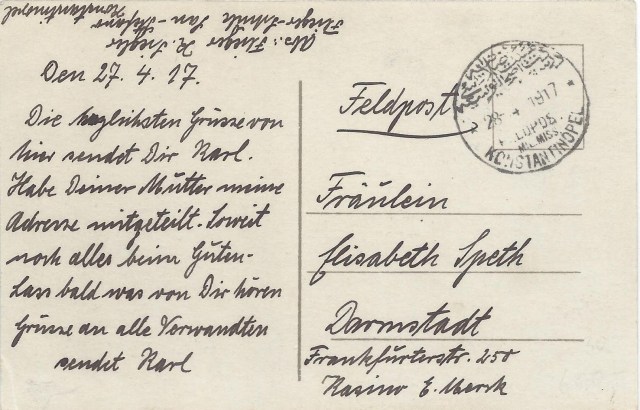 Abs: Flieger K. Ziegler
Flieger-Schule San-Stefano
Konstantinopel
Den 27. 4. 17.
Die herzlichsten Grüsse von
hier sendet Dir Karl.
Habe Deiner Mutter meine
Adresse mitgeteilt. Soweit
noch alles beim Guten.
Lass bald was von Dir hören
Grüsse an alle Verwandten
sendet Karl
Feldpost
28 4 1917
EDPOS
MIL. MISS.
KONSTANTINOPEL
Fräulein
Elisabeth Speth
Darmstadt
Frankfurterstr. 250
Kasino E. Merck